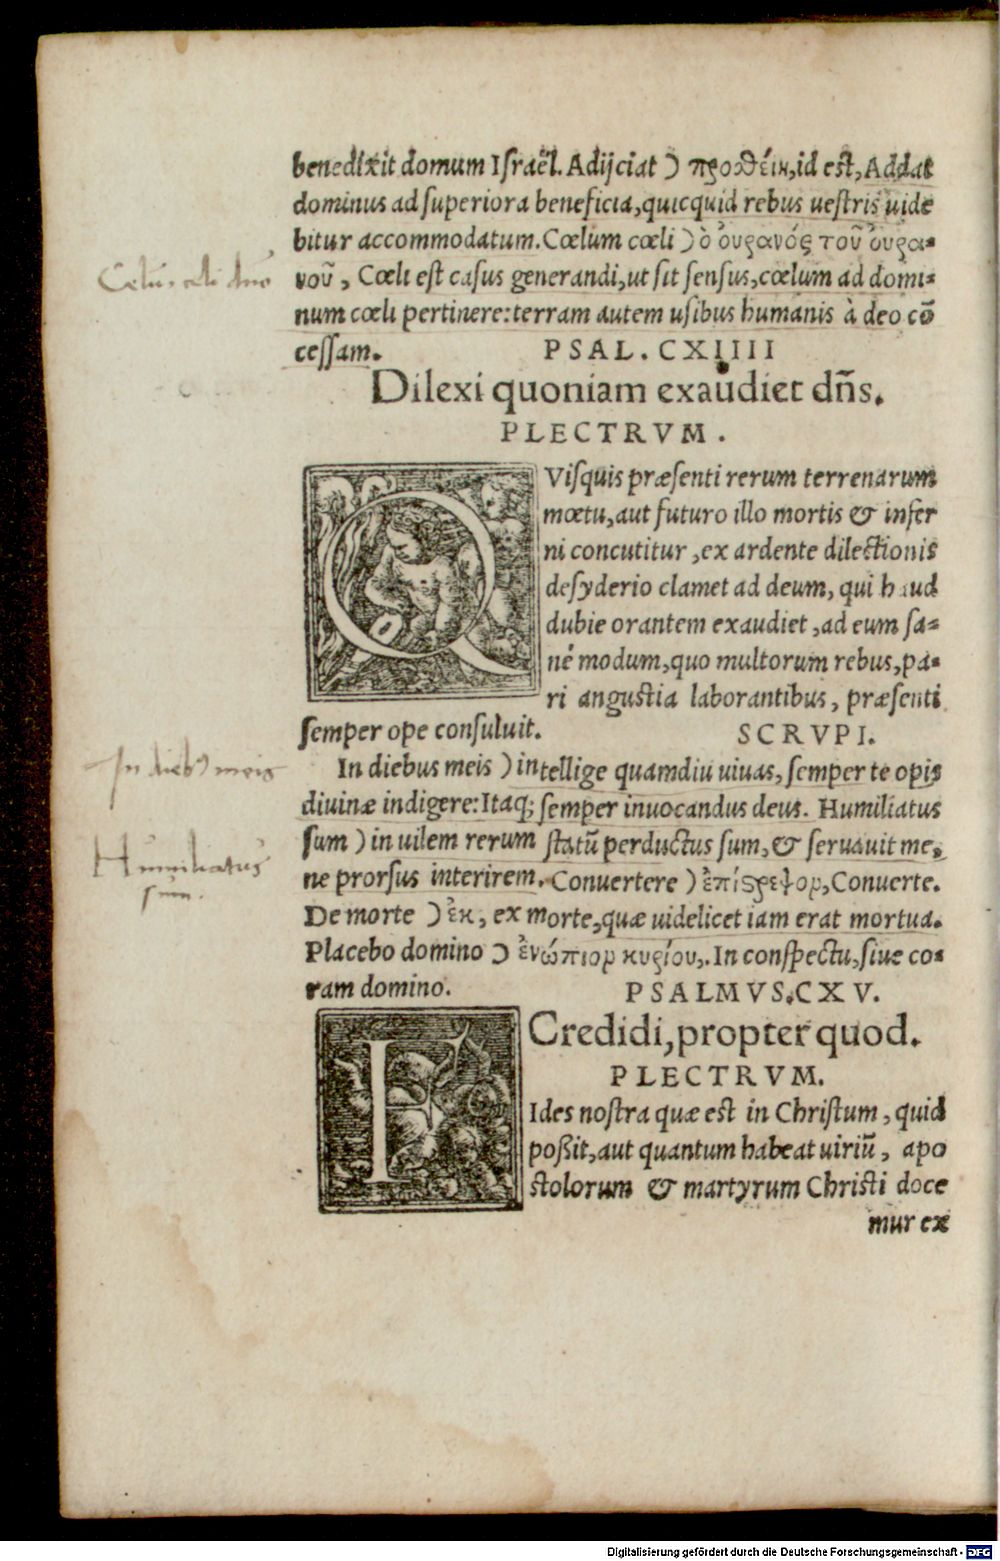 benedixit domum Iſraël. Adijciat ) προσθείη, id eſt, Addat
dominus ad ſuperiora beneficia, quicquid rebus ueſtris uide
bitur accommodatum. Cœlum cœli ) ὁ ουρανός τοῦ ουρα-
Celū celi dnō
νοῦ, Cœli eſt caſus generandi, ut ſit ſenſus, cœlum ad domi-
num cœli pertinere: terram autem uſibus humanis à deo cō
ceſſam. PSAL. CXIIII
Dilexi quoniam exaudiet dñs.
PLECTRVM.
QViſquis præſenti rerum terrenarum
mœtu, aut futuro illo mortis & infer
ni concutitur, ex ardente dilectionis
deſyderio clamet ad deum, qui haud
dubie orantem exaudiet, ad eum ſa-
né modum, quo multorum rebus, pa-
ri anguſtia laborantibus, præſenti
ſemper ope conſuluit. SCRVPI.
In dieb9 meis
In diebus meis ) intellige quamdiu uiuas, ſemper te opis
diuinæ indigere: Itaq; ſemper inuocandus deus. Humiliatus
Humiliatus
ſum.
ſum ) in uilem rerum ſtatū perductus ſum, & ſeruauit me,
ne prorſus interirem. Conuertere ) ἐπίςρεψον, Conuerte.
De morte ) ἐκ, ex morte, quæ uidelicet iam erat mortua.
Placebo domino ) ἐνώπιον κυρίου,. In conſpectu, ſiue co-
ram domino. PSALMVS. CXV.
Credidi, propter quod.
PLECTRVM.
FIdes noſtra quæ eſt in Chriſtum, quid
poßit, aut quantum habeat uiriū, apo
ſtolorum & martyrum Chriſti doce
mur ex
Digitalisierung gefördert durch die Deutsche Forschungsgemeinschaft - DFG